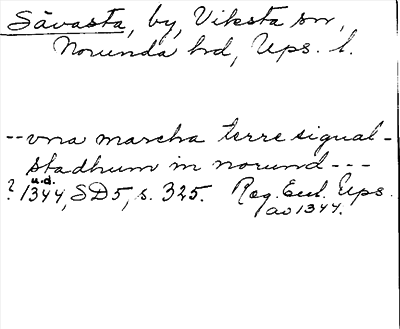 Sävasta, by, Viksta sn,
Norunda hd, Ups. l.
-- vna marcha terre sigual-
stadhum in norund ---
? u.d. 1344, SD5, s. 325. Reg. Eccl. Ups.
av 1344.